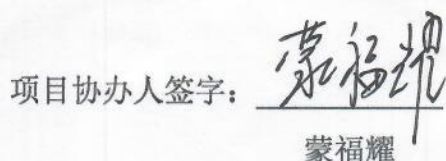 项目协办人签字：蒙福耀
蒙福耀